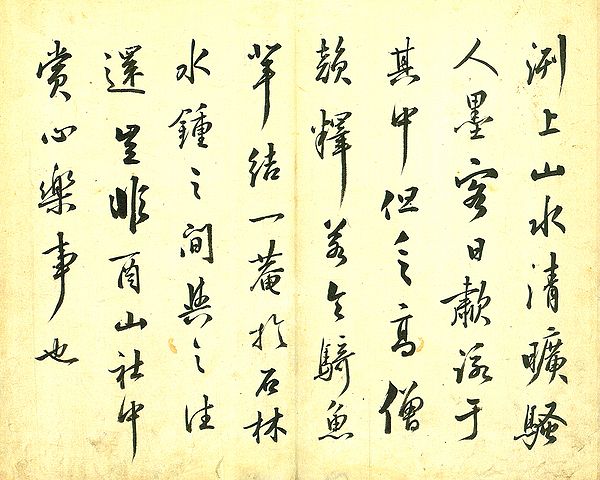 泖上山水清曠騷
人墨客日歗詠于
其中但乏高僧
韻釋若令騎魚
結一菴於石林
水鍾之間與之往
還豈非酉山社中
賞心樂事也